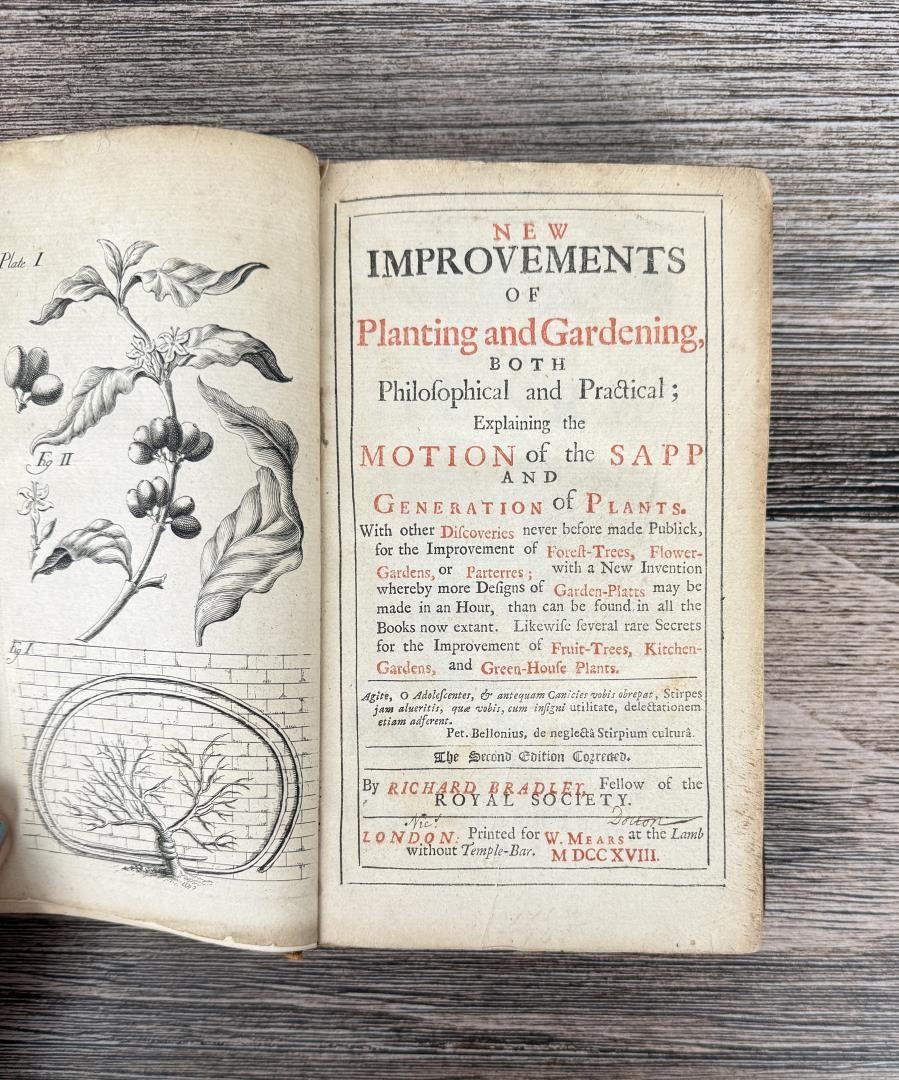 Plate I
Fig II
Fig I
NEW
IMPROVEMENTS
OF
Planting and Gardening,
BOTH
Philoſophical and Practical;
Explaining the
MOTION of the SAPP
AND
GENERATION of PLANTS.
With other Diſcoveries never before made Publick,
for the Improvement of Foreſt-Trees, Flower-
Gardens, or Parterres; with a New Invention
whereby more Deſigns of Garden-Platts may be
made in an Hour, than can be found in all the
Books now extant. Likewiſe ſeveral rare Secrets
for the Improvement of Fruit-Trees, Kitchen-
Gardens, and Green-Houſe Plants.
Agite, O Adoleſcentes, & antequam Canicies vobis obrepat, Stirpes
jam alueritis, quæ vobis, cum inſigni utilitate, delectationem
etiam adferent.
Pet. Bellonius, de neglectâ Stirpium culturâ.
The Second Edition Corrected.
By RICHARD BRADLEY, Fellow of the
ROYAL SOCIETY.
LONDON: Printed for W. MEARS at the Lamb
without Temple-Bar. MDCCXVIII.